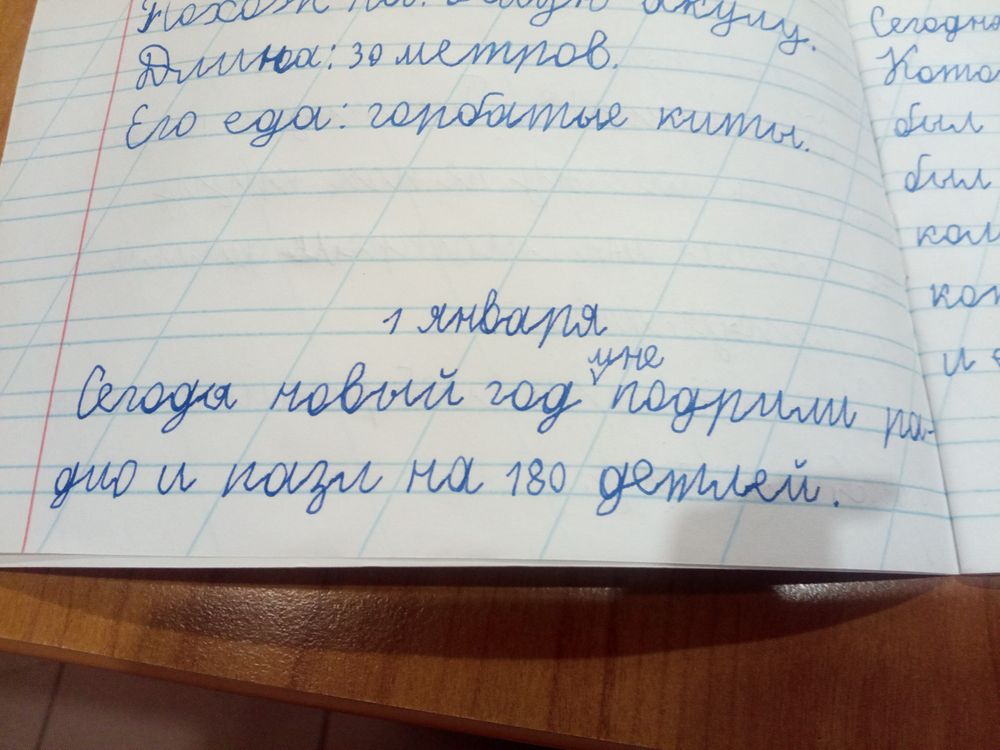 Похож на: белую акулу.
Длина: 30 метров.
Его еда: горбатые киты.
1 января
мне
Сегодя новый год подрили ра-
дио и пазл на 180 детлей.
Сегодня
был
был
и